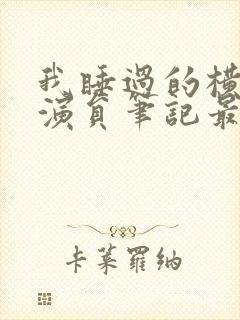 我睡過的横
演員筆記最
卡萊羅納